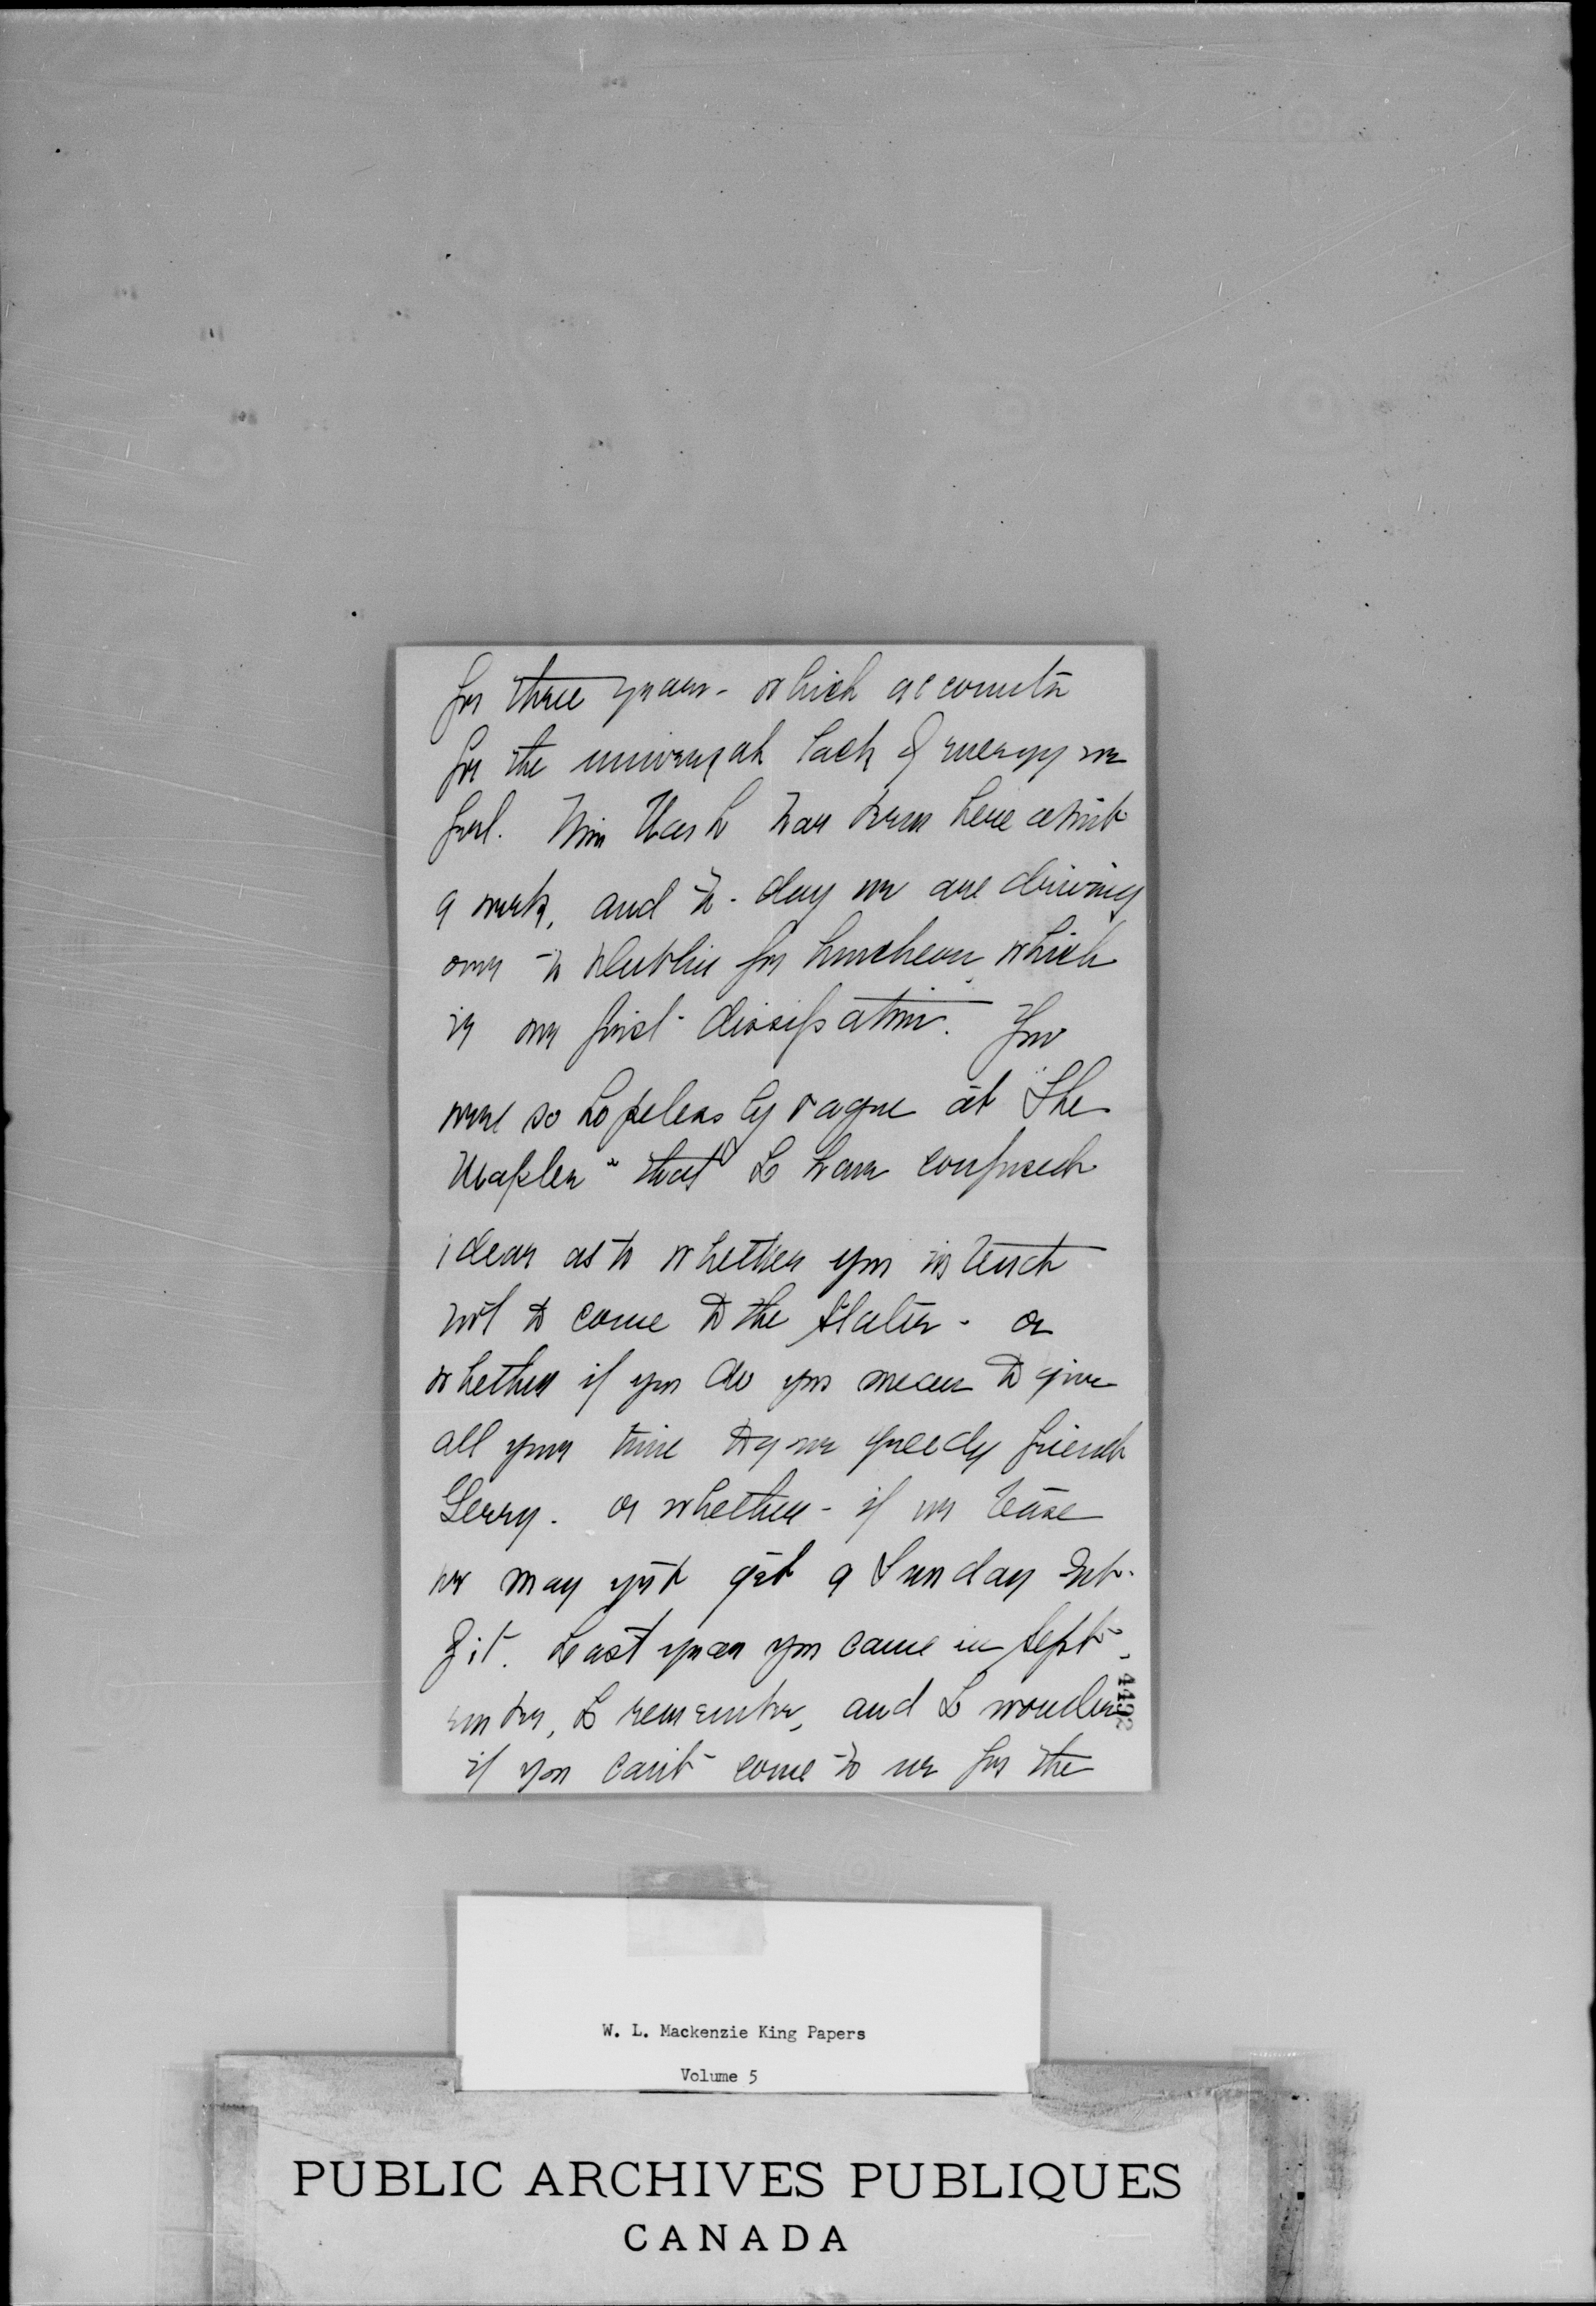 for three years - which accounts
for the universal lack of energy we
feel. Miss Marsh has been here about
a week, and to-day we are driving
over to Dublin for luncheon, which
is our first dissipation. You
were so hopelessly vague at "The
Maples" that I have confused
ideas as to whether you intend
not to come to the States - or
whether if you do you mean to give
all your time to your greedy friend
Gerry - or whether - if we tease
we may yet get a Sunday out
of it. Last year you came in Sept-
ember, I remember, and I wonder
if you can't come to us for the
4492
W. L. Mackenzie King Papers
Volume 5
PUBLIC ARCHIVES PUBLIQUES
CANADA